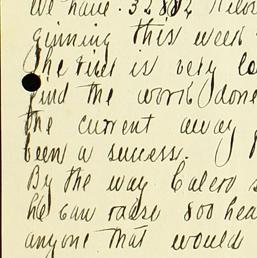 We have 32882
ginning this week
The river is very lo
find the work done
the current away
been a success. I
By the way Calero s
he can raise 800 hea
anyone that would